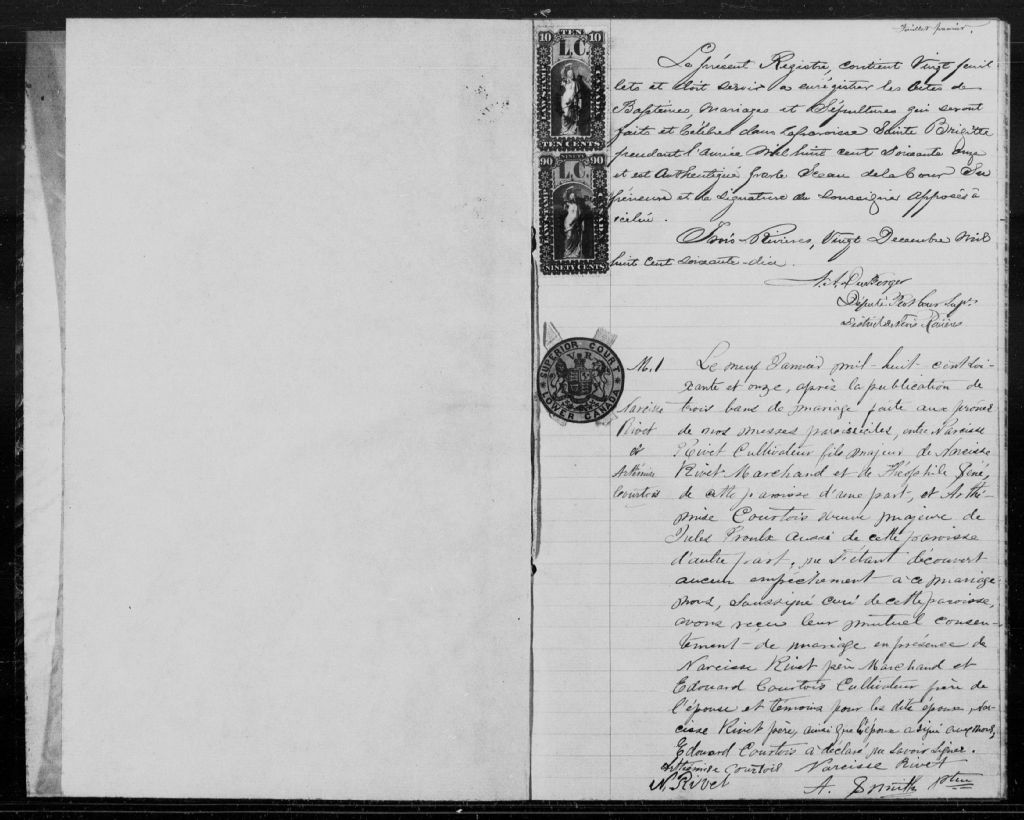 feuillet premier.
TEN
10 L.C. 10
LAW STAMP
CANADA
TEN CENTS
NINETY
90 L.C. 90
LAW STAMP
CANADA
NINETY CENTS
Le présent Registre, contient Vingt feuil
lets et doit servir a enrégistrer les actes de
Baptêmes, Mariages et Sépultures qui seront
faits et Célébrés dans la paroisse Sainte Brigitte
pendant l'année Mil huit cent Soixante Onze
et est Authentiqué par le Sceau de la Cour Su
périeure et la Signature du Soussigné Apposés à
icelui.
Trois-Rivières, Vingt Decembre Mil
huit Cent Soixante-dix.
Député Prot Cour Supre
District des Trois Rivières
SUPERIOR COURT
V R
LOWER CANADA
M. 1
Narcisse
Rivet
&
Arthémise
Courtois
Le neuf Janvier mil-huit-cent soi-
xante et onze, après la publication de
trois bans de mariage faite aux prônes
de nos messes paroissiales, entre Narcisse
Rivet Cultivateur fils majeur de Narcisse
Rivet Marchand et de Théophile Géné,
de cette paroisse d'une part, et Arthé-
mise Courtois veuve majeure de
Jules Proulx aussi de cette paroisse
d'autre part, ne s'étant découvert
aucun empêchement à ce mariage
nous, Soussigné curé de cette paroisse,
avons reçu leur mutuel consen-
tement de mariage en présence de
Narcisse Rivet père Marchand et
Edouard Courtois Cultivateur père de
l'épouse et témoins pour les dits époux, Nar-
cisse Rivet père, ainsi que l'époux a signé avec nous,
Edouard Courtois a déclaré ne savoir signer.
Arthémise Courtois Narcisse Rivet
N. Rivet A. Smith ptre